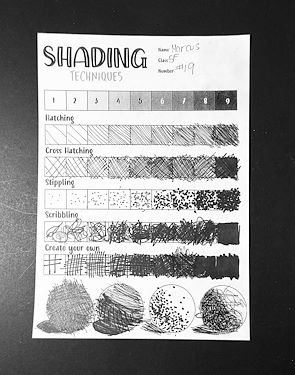 SHADING
TECHNIQUES
Name Marcus
Class 5F
Number #19
1 2 3 4 5 6 7 8 9
Hatching
Cross Hatching
Stippling
Scribbling
Create your own